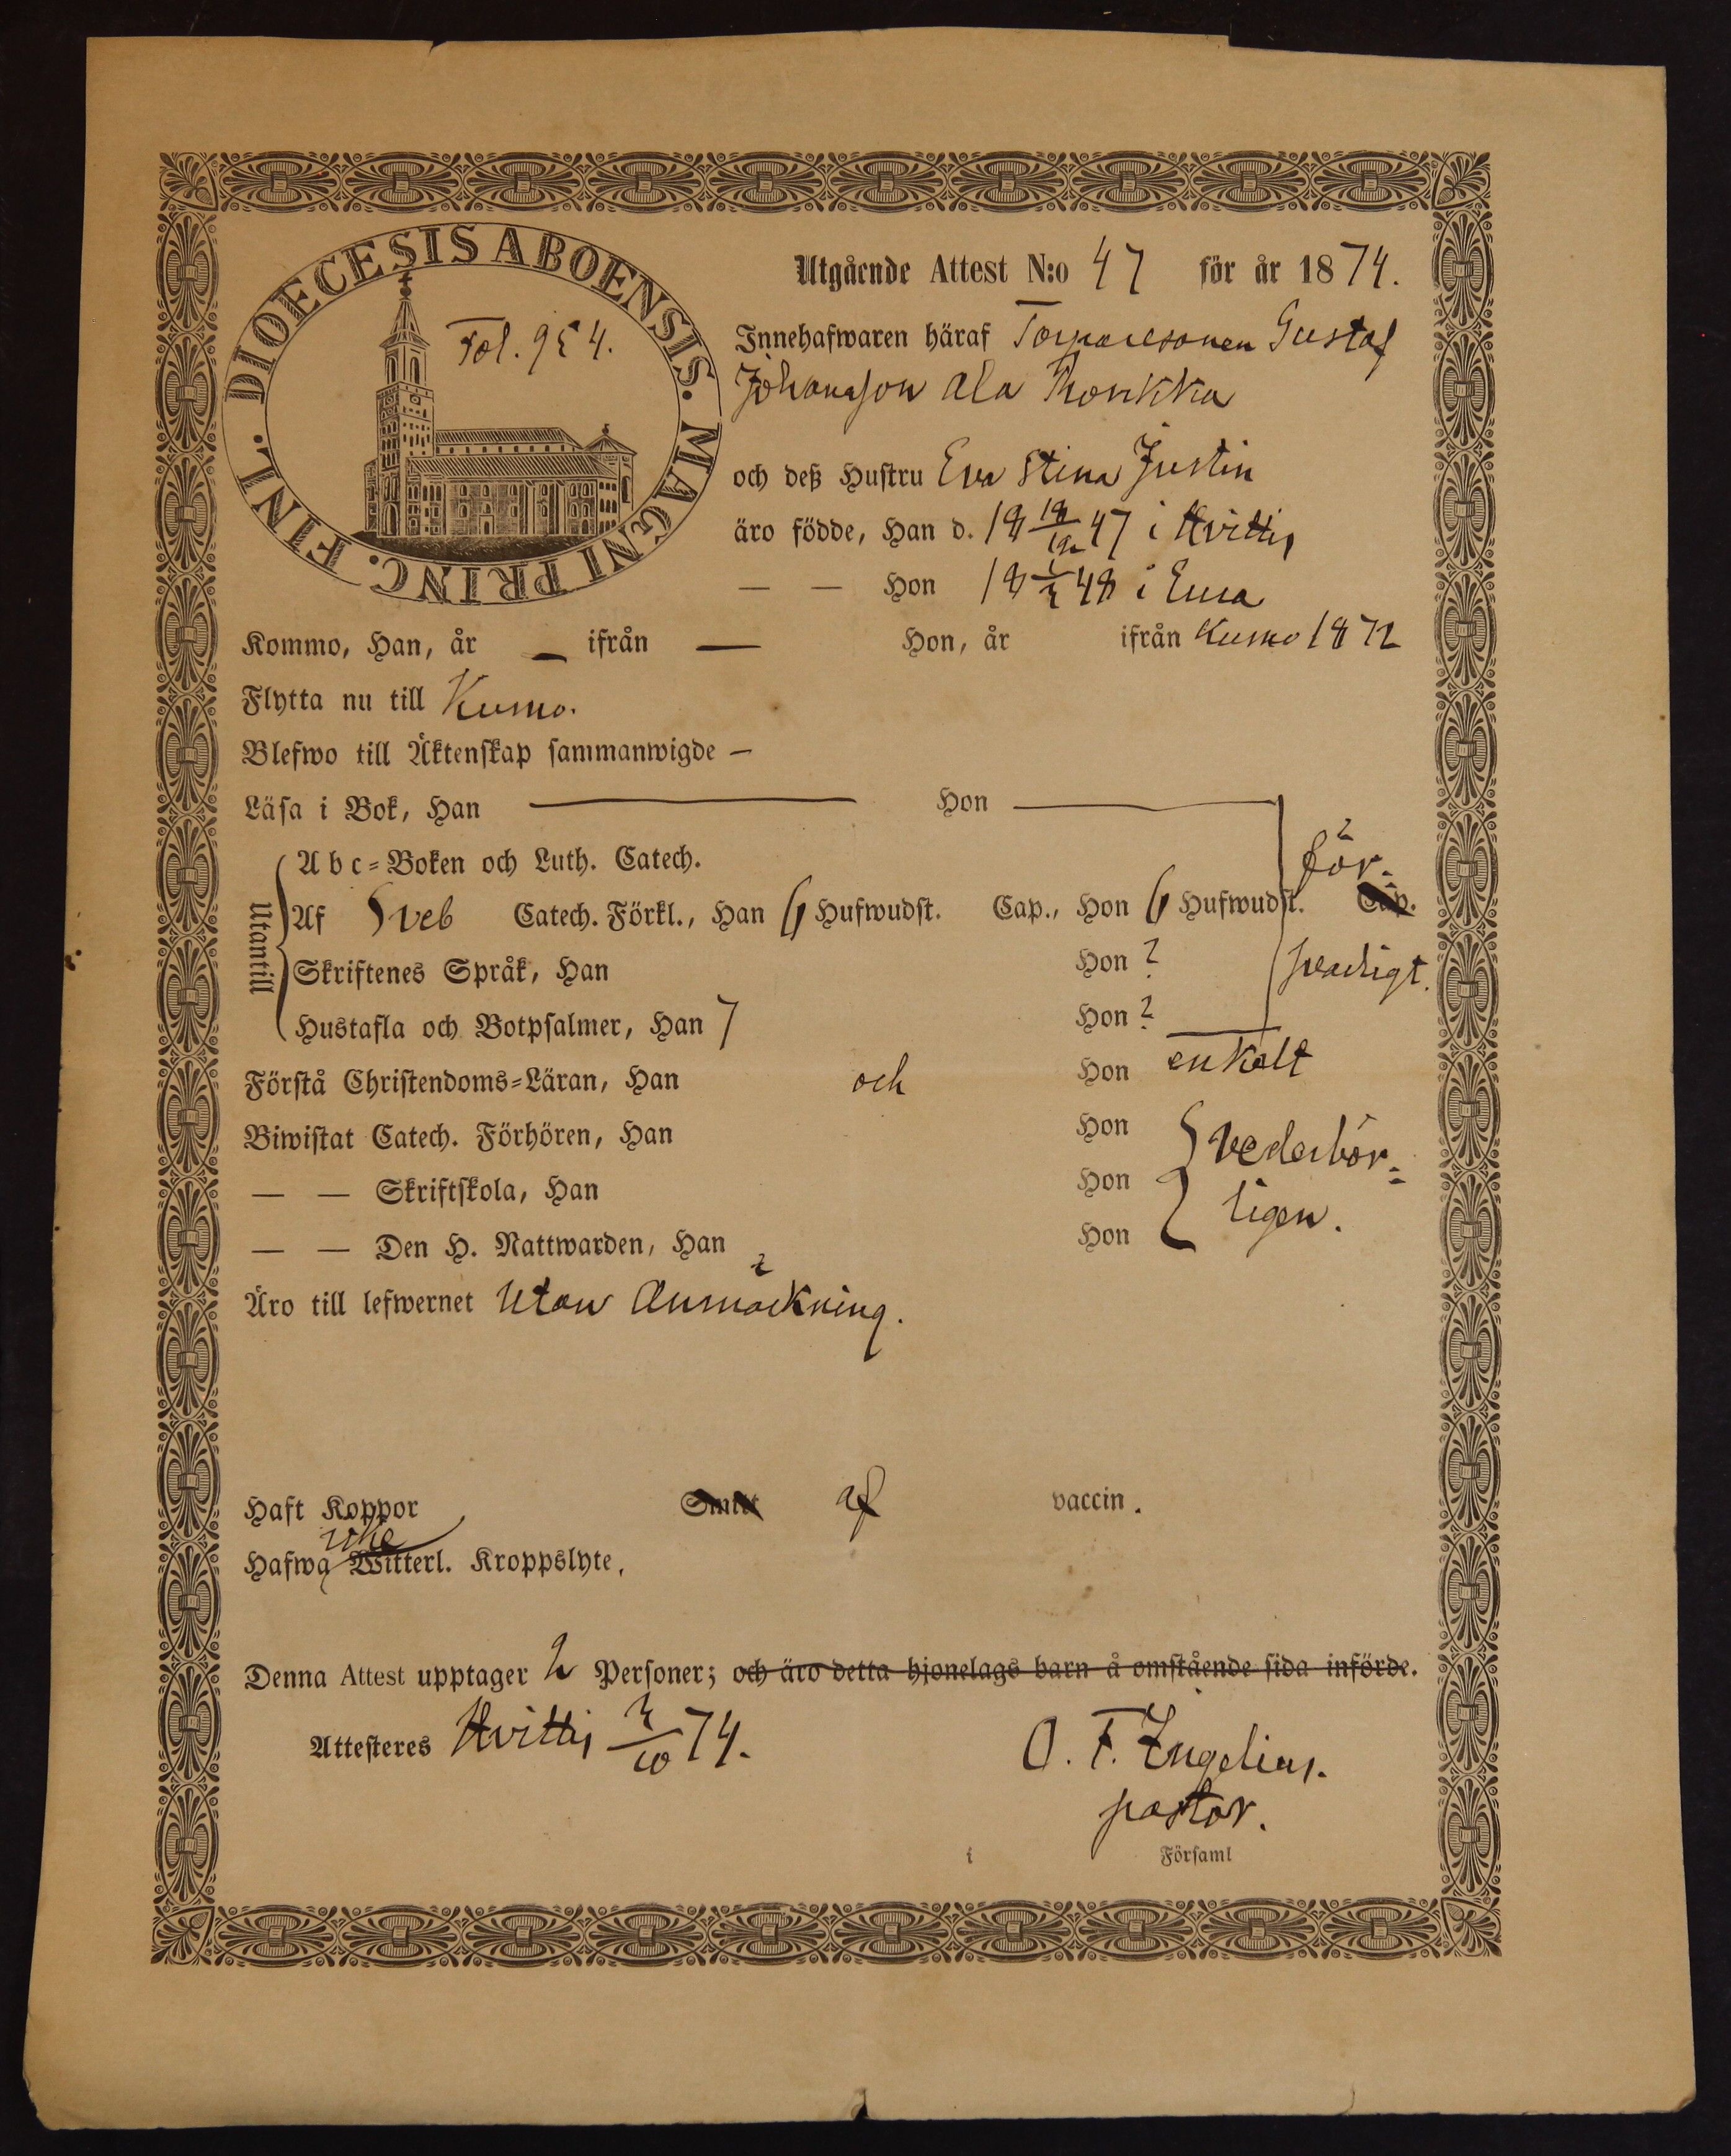 DIOECESIS ABOENSIS. MAGNI PRINC. FINL.
Fol. 954.
Utgående Attest N:o 47 för år 1874.
Innehafwaren häraf Torparesonen Gustaf
Johansson Ala
och deß Hustru Eva Stina Justin
äro födde, Han d. 18 18/12 47 i Hvittis
— — Hon 18 48 i Eura
Kommo, Han, år — ifrån — Hon, år ifrån Kumo 1872
Flytta nu till Kumo.
Blefwo till Äktenskap sammanwigde —
Läsa i Bok, Han — Hon —
Utantill
Abc-Boken och Luth. Catech. för-
Af Sveb Catech. Förkl., Han 6 Hufwudst. Cap., Hon 6 Hufwudst. Cap.
Skriftenes Språk, Han Hon svarligt.
Hustafla och Botpsalmer, Han Hon
Förstå Christendoms-Läran, Han och Hon enkelt
Biwistat Catech. Förhören, Han Hon vederbör-
— — Skriftskola, Han Hon ligen.
— — Den H. Nattwarden, Han Hon
Äro till lefwernet Utan Anmärkning.
Haft Koppor Smitt af vaccin.
icke
Hafwa Witterl. Kroppslyte.
Denna Attest upptager 2 Personer; och äro detta hjonelags barn å omstående sida införde.
Attesteres Hvittis 2/10 74.
O. F. Zngelius.
pastor.
i Församl